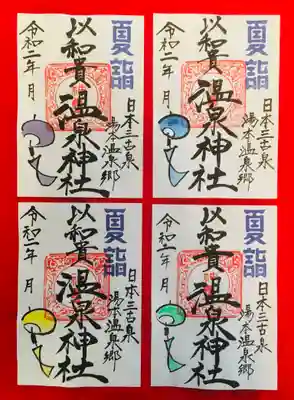 夏詣
日本三古泉
湯本温泉郷
以和貴
温泉神社
令和二年 月
夏詣
日本三古泉
湯本温泉郷
以和貴
温泉神社
令和二年 月
夏詣
日本三古泉
湯本温泉郷
以和貴
温泉神社
令和二年 月
夏詣
日本三古泉
湯本温泉郷
以和貴
温泉神社
令和二年 月